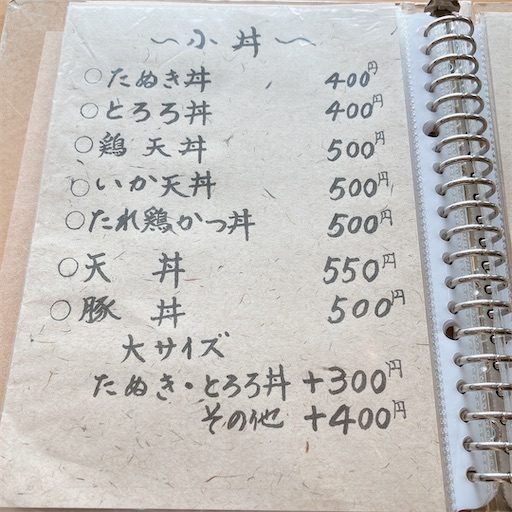 〜小丼〜
○たぬき丼 400円
○とろろ丼 400円
○鶏天丼 500円
○いか天丼 500円
○たれ鶏かつ丼 500円
○天 丼 550円
○豚 丼 500円
大サイズ
たぬき・とろろ丼 +300円
その他 +400円